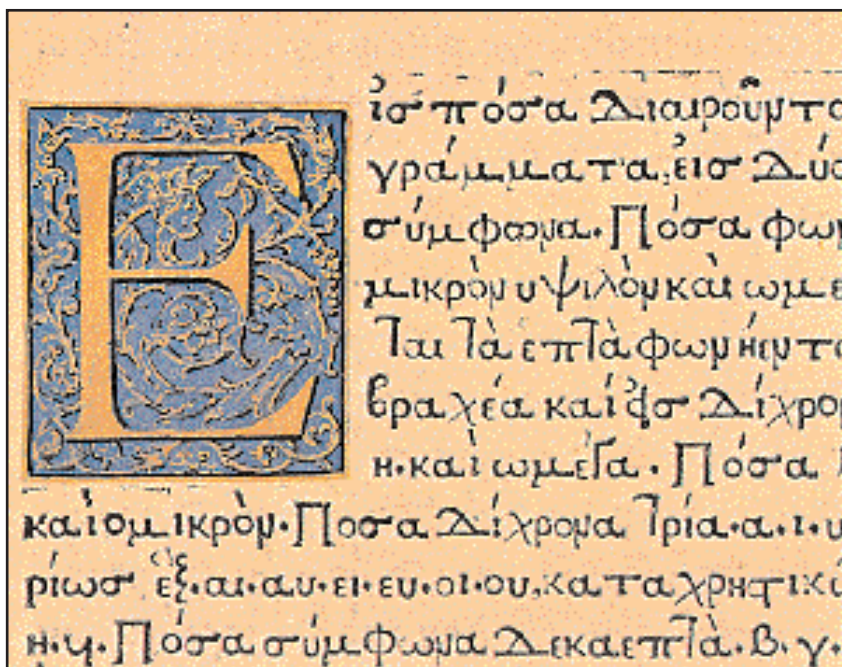 Εἰσ πόσα Διαιροῦντα
γράμματα, εἰσ Δύο
σύμφωνα. Πόσα φων
μικρὸν υψιλὸν καὶ ωμε
ται τὰ ἑπτὰ φωνήεντα
βραχέα καὶ εἰσ Δίχρον
η. καὶ ωμέγα. Πόσα
καὶ ομικρὸν. Ποσα Δίχρονα τρία. α. ι. υ
ρίωσ ἕξ. αι. αυ. ει. ευ. οι. ου, καταχρηστικῶ
η. υ. Πόσα σύμφωνα Δεκαεπτὰ. β. γ.